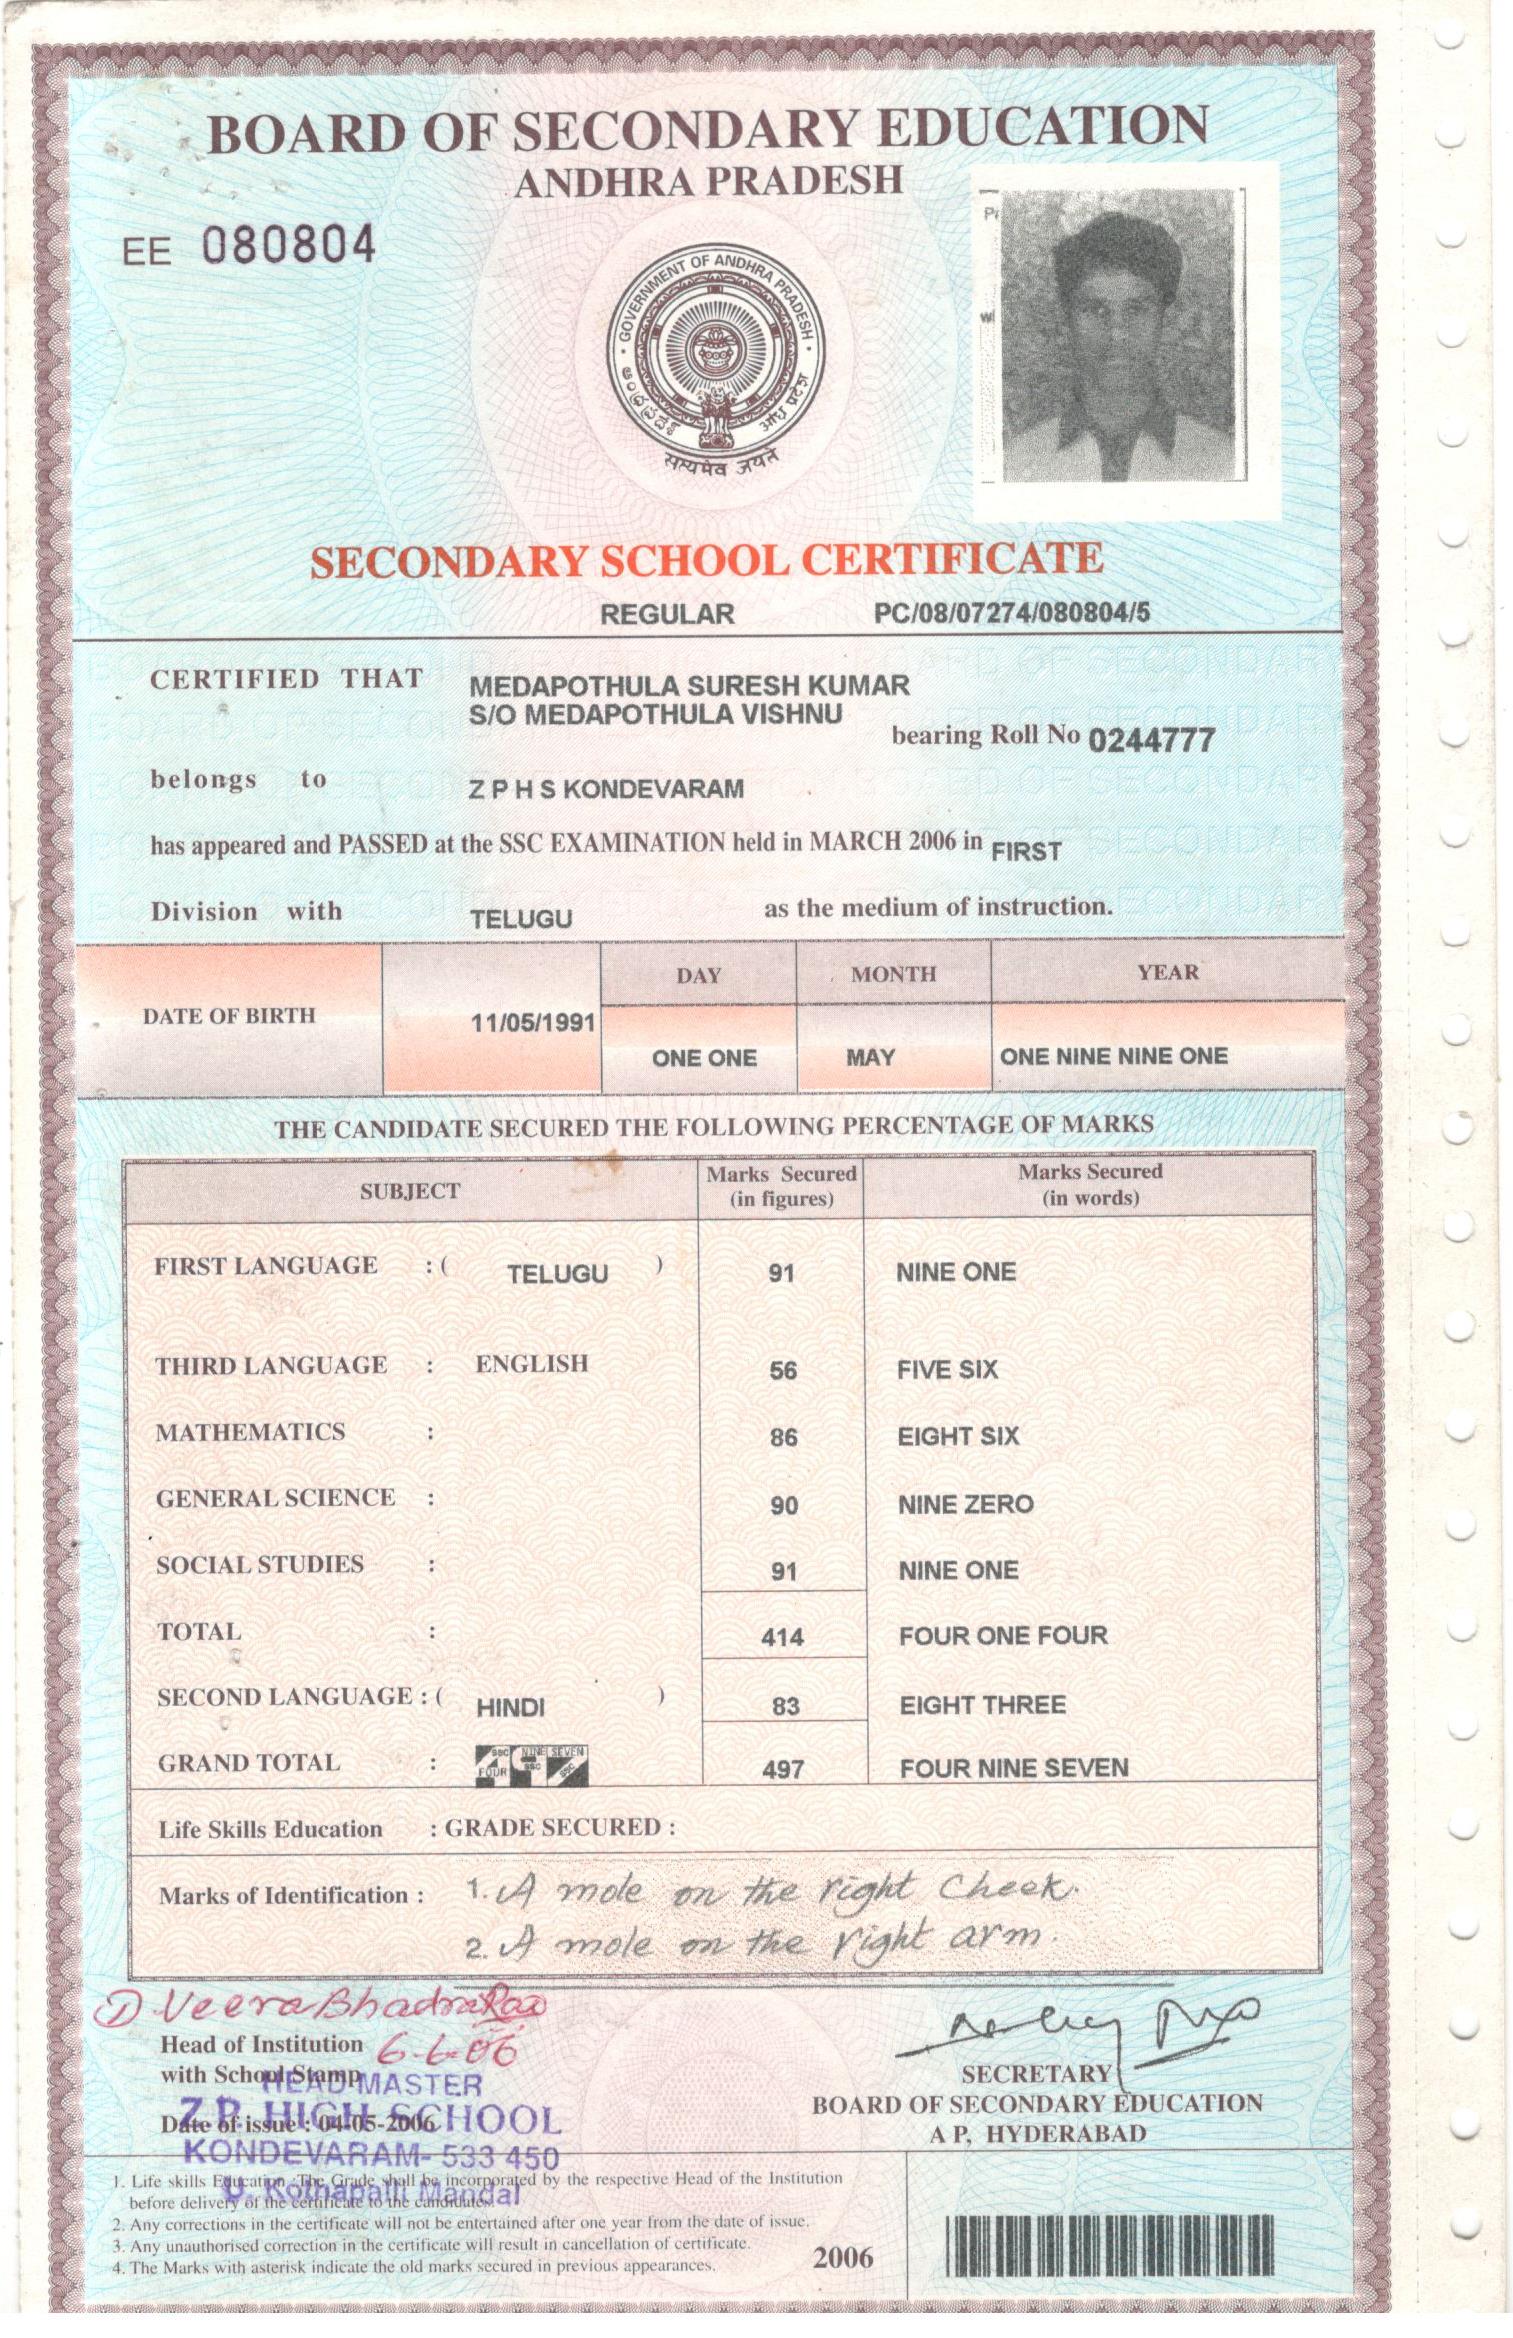 BOARD OF SECONDARY EDUCATION
ANDHRA PRADESH
EE 080804
GOVERNMENT OF ANDHRA PRADESH
ఆంధ్రప్రదేశ్ आंध्र प्रदेश
सत्यमेव जयते
SECONDARY SCHOOL CERTIFICATE
REGULAR PC/08/07274/080804/5
CERTIFIED THAT MEDAPOTHULA SURESH KUMAR
S/O MEDAPOTHULA VISHNU
bearing Roll No 0244777
belongs to Z P H S KONDEVARAM
has appeared and PASSED at the SSC EXAMINATION held in MARCH 2006 in FIRST
Division with TELUGU as the medium of instruction.
DAY MONTH YEAR
DATE OF BIRTH 11/05/1991
ONE ONE MAY ONE NINE NINE ONE
THE CANDIDATE SECURED THE FOLLOWING PERCENTAGE OF MARKS
SUBJECT Marks Secured (in figures) Marks Secured (in words)
FIRST LANGUAGE : ( TELUGU ) 91 NINE ONE
THIRD LANGUAGE : ENGLISH 56 FIVE SIX
MATHEMATICS : 86 EIGHT SIX
GENERAL SCIENCE : 90 NINE ZERO
SOCIAL STUDIES : 91 NINE ONE
TOTAL : 414 FOUR ONE FOUR
SECOND LANGUAGE : ( HINDI ) 83 EIGHT THREE
GRAND TOTAL : SSC FOUR NINE SSC SEVEN SSC 497 FOUR NINE SEVEN
Life Skills Education : GRADE SECURED :
Marks of Identification : 1. A mole on the right cheek.
2. A mole on the right arm.
D. VeeraBhadraRao
Head of Institution 6-6-06
with School Stamp
HEAD MASTER
Z.P. HIGH SCHOOL
Date of issue : 04-05-2006
KONDEVARAM- 533 450
U. Kothapalli Mandal
SECRETARY
BOARD OF SECONDARY EDUCATION
A P, HYDERABAD
1. Life skills Education :The Grade shall be incorporated by the respective Head of the Institution
before delivery of the certificate to the candidates.
2. Any corrections in the certificate will not be entertained after one year from the date of issue.
3. Any unauthorised correction in the certificate will result in cancellation of certificate.
4. The Marks with asterisk indicate the old marks secured in previous appearances.
2006